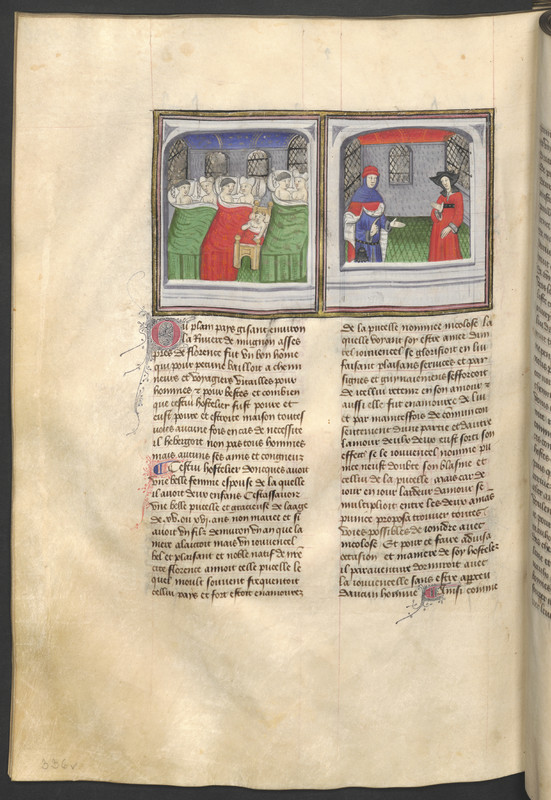 Ou plain pays gisant environ
la Riviere de mugnon asses
pres de florence fut un bon home
qui pour pecune bailloit a chemi
neurs et voyagiers vitailles pour
hommes et pour bestes et combien
que cestui hostelier fust povre et
eust povre et estroite maison toutes
voies aucune fois en cas de necessite
il hebergoit non pas tous hommes
mais aucuns ses amis et congneuz
Cestui hostelier doncques avoit
une belle femme espouse de la quelle
il avoit deux enfans Cestassavoir
une belle pucelle et gracieuse de laage
de xv. ou xvj. ans non mariee et si
avoit un filz denviron un an que la
mere alaictoit mais un jouvencel
bel et plaisant et noble natif de nre
cite florence amoit celle pucelle le
quel moult souvent frequentoit
cellui pays et fort estoit enamoure
de la pucelle nommee nicolose la
quelle voyant soy estre amee dun
tel jouvencel se glorifioit en lui
faisant plaisans services et par
signes et guignemens sefforcoit
de icellui retenir en son amour et
aussi elle fut enamouree de lui
et par maintesfois de commun con
sentement dune partie et dautre
lamour deulx deux eust sorti son
effect se le jouvencel nomme pi
nuce neust doubte son blasme et
cellui de la pucelle mais car de
jour en jour lardeur damour se
multiplioit entre les deux amans
pinuce proposa trouver toutes
voies possibles de joindre avec
nicolose Et pour ce faire advisa
occasion et maniere de soy hosteler
il paraventure dormiroit avec
la jouvencelle sans estre apperceu
daucun homme Ainsi comme
336v